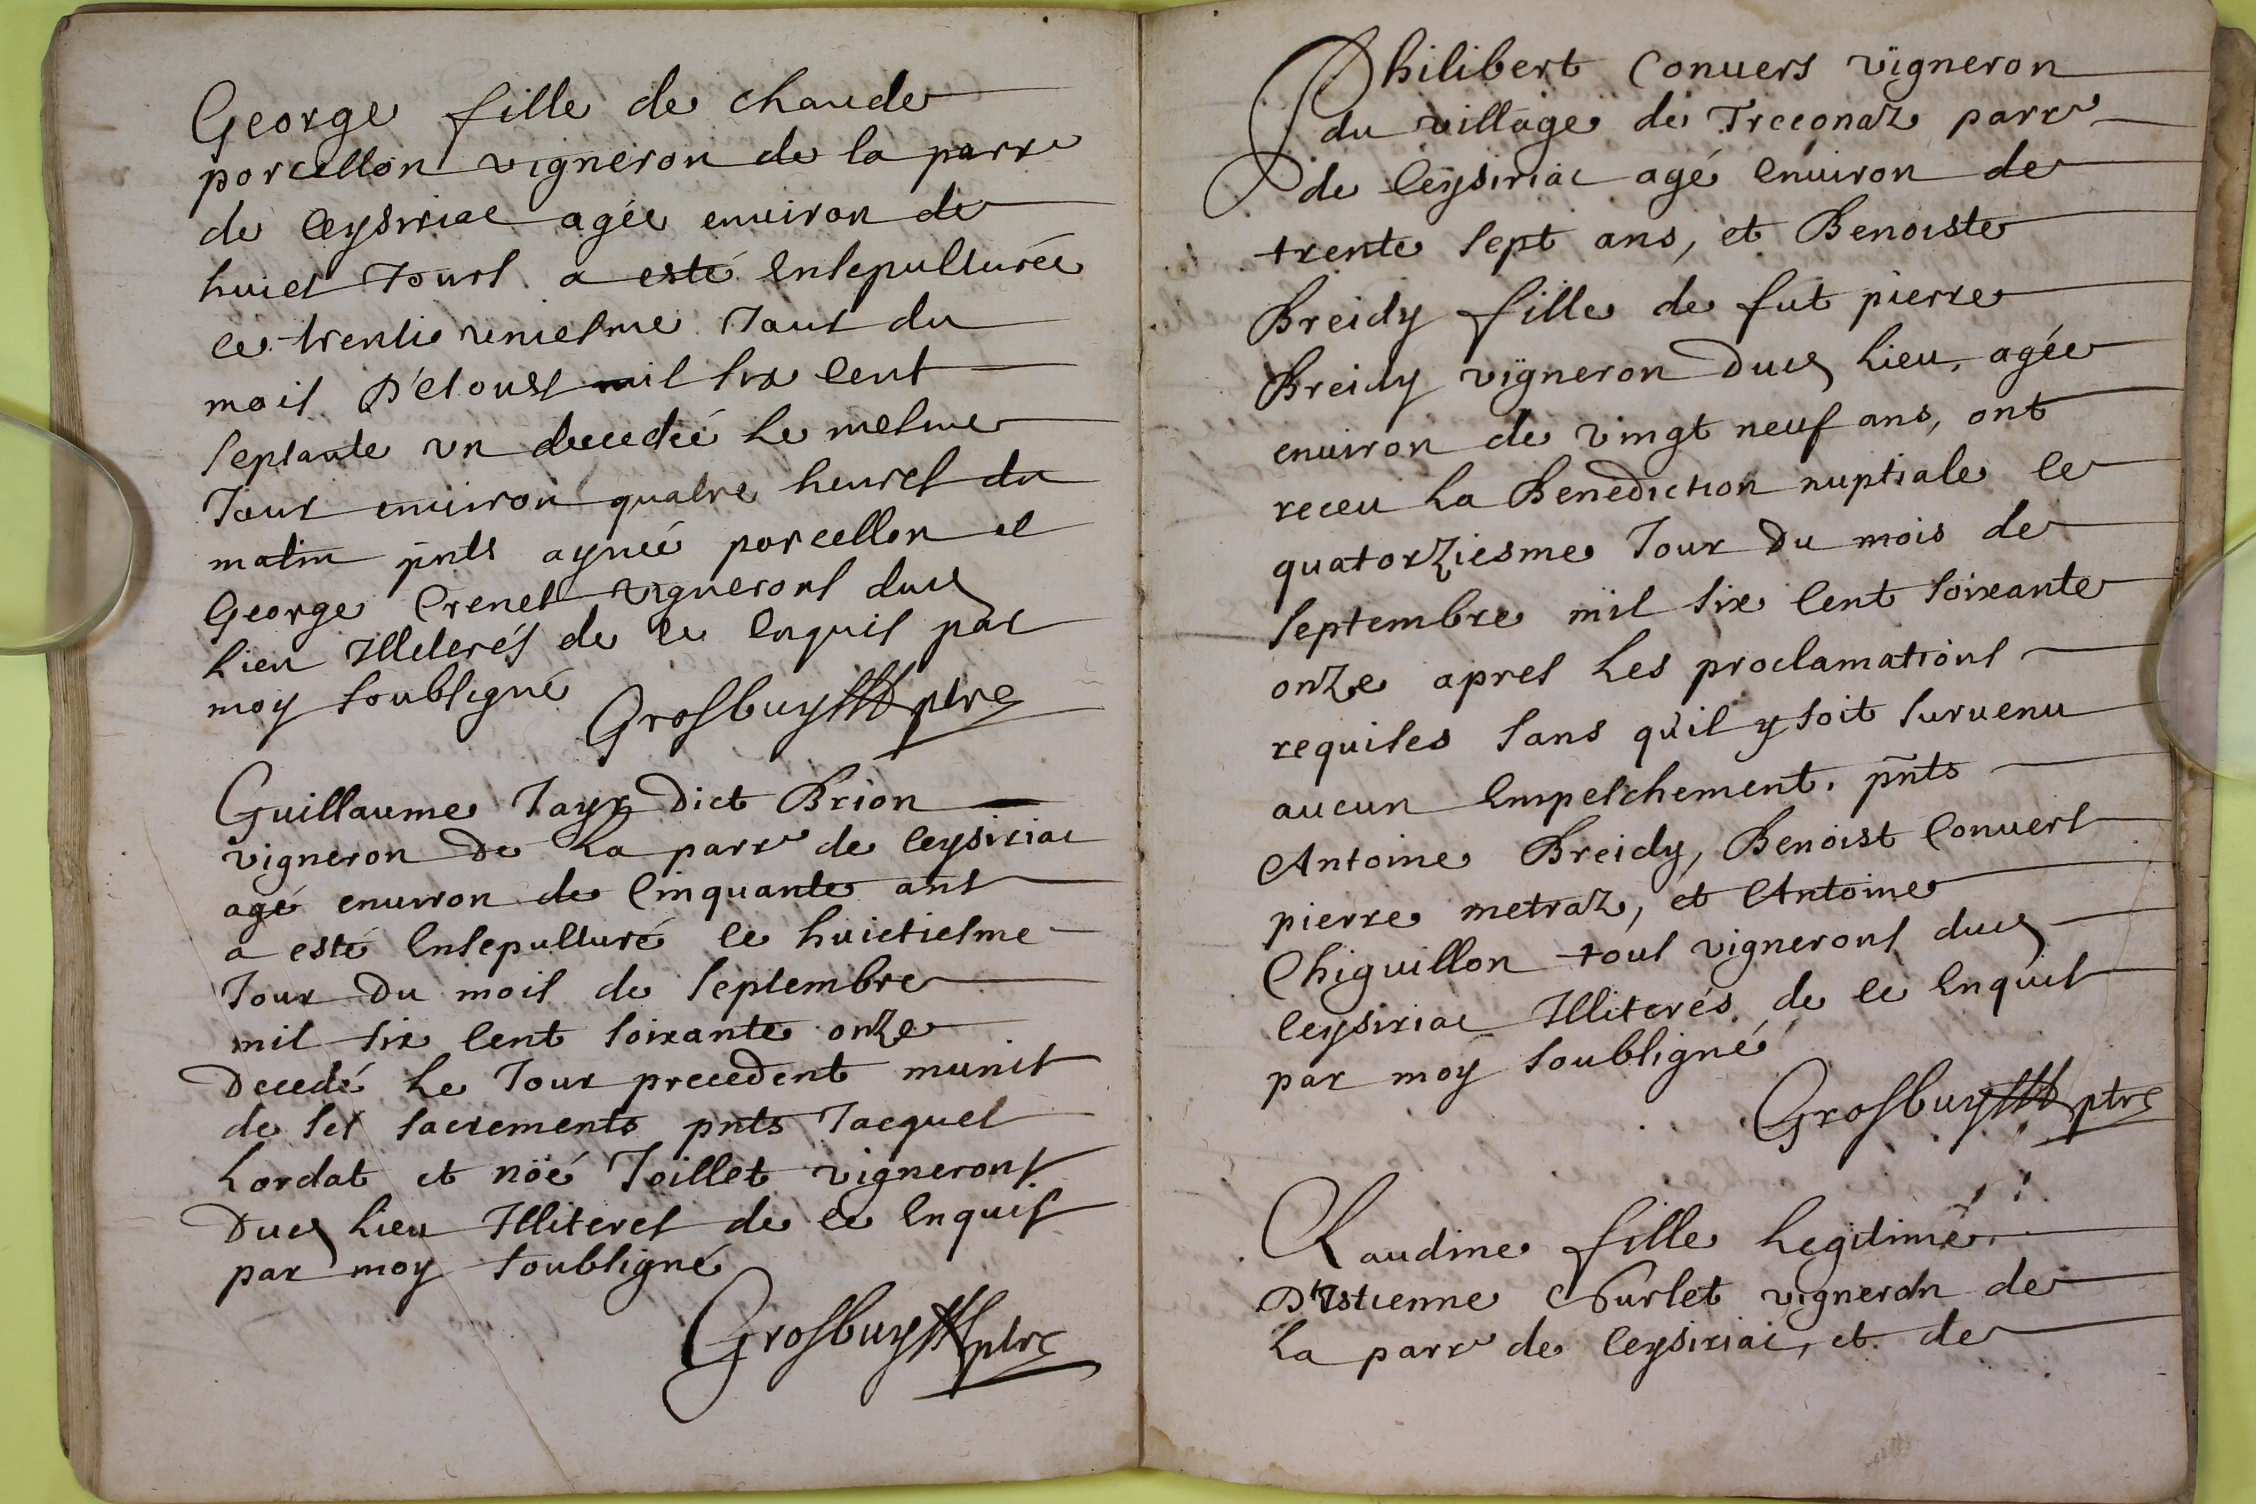 George fille de claude
porcellon vigneron de la parr&e
de Ceysiriac agée environ de
huict Jours a esté Ensepulturée
ce trentie uniesme Jour du
mois D'Eloust mil six Cent
septante un decedée Le mesme
Jour environ quatre heures du
matin pnts aymé porcellon et
George Crenet vignerons dud
Lieu Illiterés de ce Enquis par
moy soubsigné
Grosbuy ptre
Guillaume Jayr Dict Brion
vigneron De La parr&e de Ceysiriac
agé environ de Cinquante ans
a esté Ensepulturé ce huictiesme
Jour Du mois de Septembre
mil six Cent soixante onze
Decedé Le Jour precedent munit
de ses sacrements pnts Jacques
Lordat et nöé Joillet vignerons
Dud Lieu Illiteres de ce Enquis
par moy soubsigné
Grosbuy ptre
Philibert Convers vigneron
du village de Treconaz parr&e
de Ceysiriac agé Environ de
trente sept ans, et Benoiste
Breidy fille de fut pierre
Breidy vigneron Dud Lieu, agée
environ de vingt neuf ans, ont
receu La Benediction nuptiale ce
quatorziesme Jour Du mois de
septembre mil six Cent soixante
onze apres Les proclamations
requises sans qu'il y soit survenu
aucun Empeschement. pnts
Antoine Breidy, Benoist Convers
pierre metraz, et Antoine
Chiguillon tous vignerons dud
Ceysiriac Illiterés de ce Enquis
par moy soubsigné
Grosbuy ptre
Claudine fille Legitime
D'Estienne Surlet vigneron de
La parr&e de Ceysiriac, et de